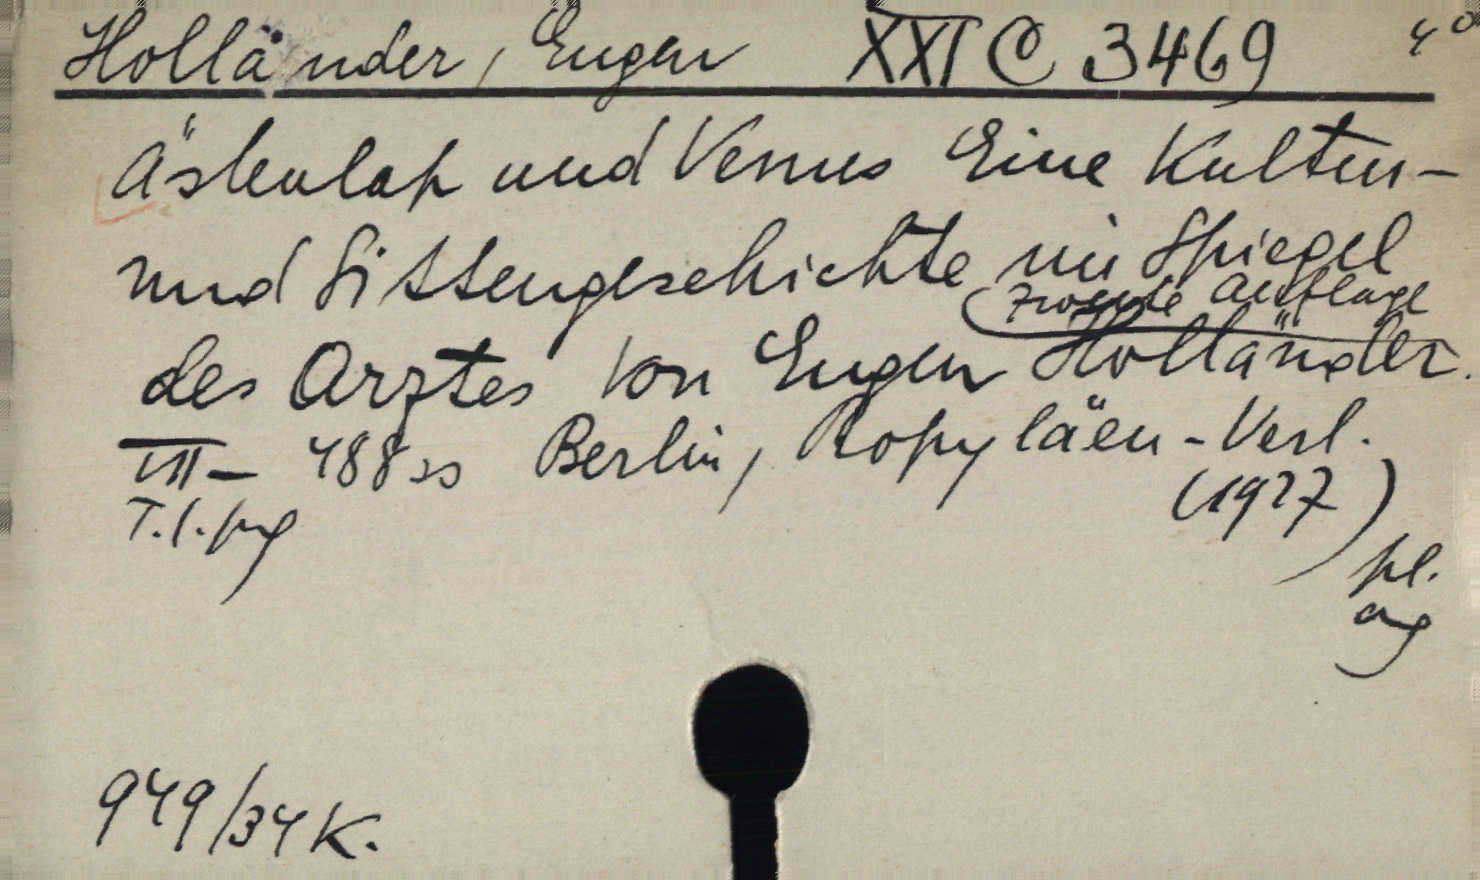 Holländer, Eugen XXI C 3469 4°
Äskulap und Venus Eine Kultur-
und Sittengeschichte im Spiegel
Zweite Auflage
des Arztes von Eugen Holländer.
VIII - 488 ss Berlin, Propyläen-Verl.
(1927)
T.l.
pl.
949/34 K.